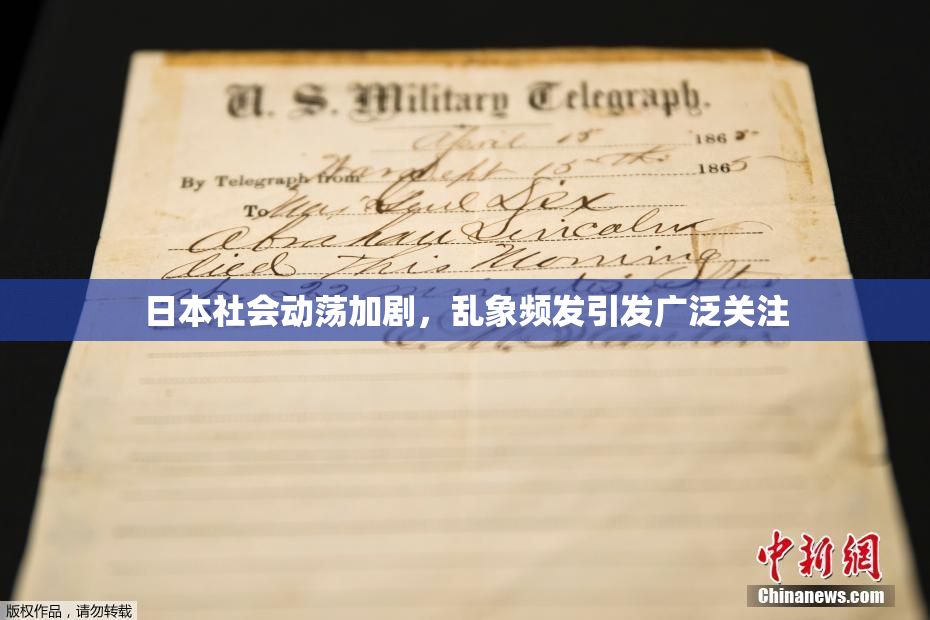 U. S. Military Telegraph.
April 15 1865
By Telegraph from War Dept 15th 1865
To Maj Genl Dix
Abraham Lincoln
died This Morning
at 22 minutes after
日本社会动荡加剧，乱象频发引发广泛关注
E. M. Stanton
中新网
Chinanews.com
版权作品，请勿转载